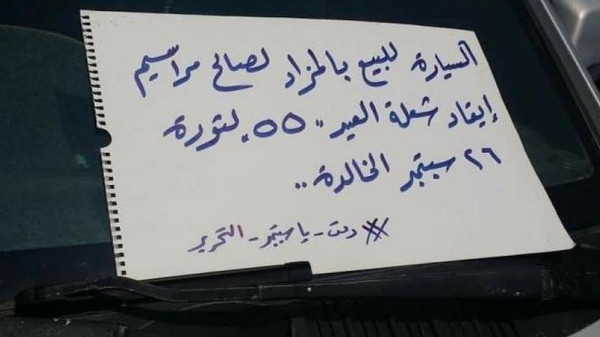 السيارة للبيع بالمزاد لصالح مراسيم
إيقاد شعلة العيد "٥٥" لثورة
٢٦ سبتمبر الخالدة ..
# دمت - يا سبتمبر - التحرير